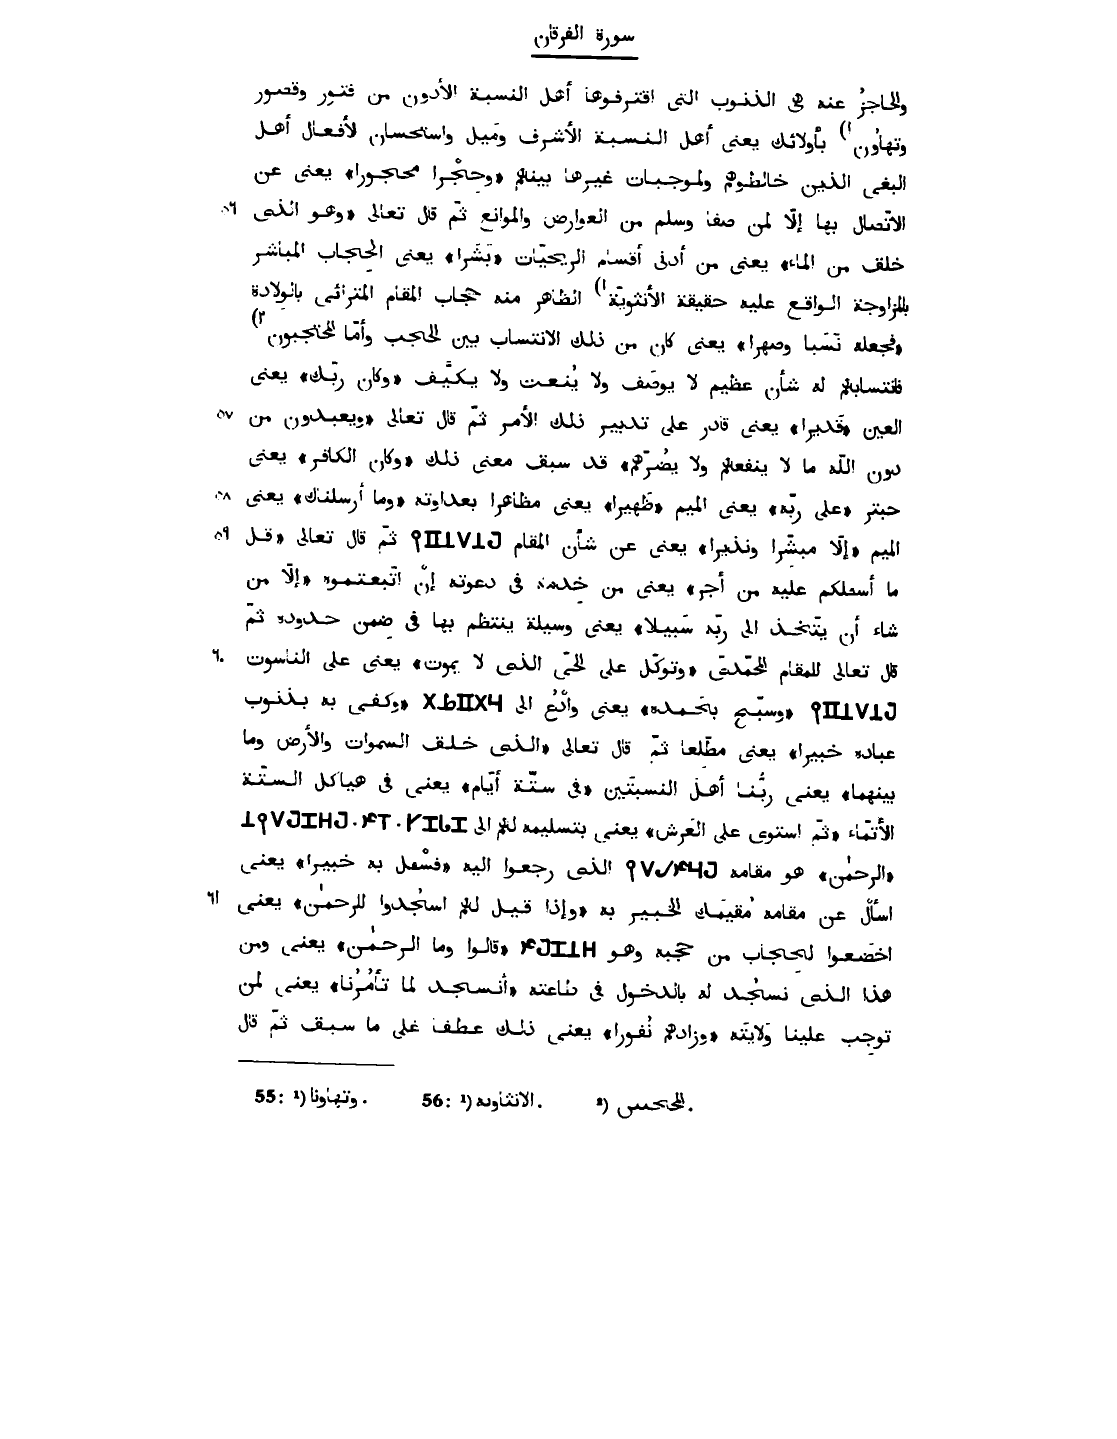 سورة الفرقان
والحاجزُ عنه هى الذنوب التى اقترفوها أهل النسبة الأدون من فتور وقصور
وتهاوُن ¹) بأولائك يعنى أهل النسبة الأشرف ومَيل واستحسان لأفعال أهل
البغى الذين خالطوهم ولموجبات غيرها بينهم «وحِجْرا محجورا» يعنى عن
الاتّصال بها إلّا لمن صفا وسلم من العوارض والموانع ثمّ قال تعالى «وهو الذى ٥٦
خلق من الماء» يعنى من أدنى أقسام الريحيّات «بَشَرا» يعنى الحجاب المباشر
بالمزاوجة الواقع عليه حقيقة الأنثويّة ¹) الظاهر منه حجاب المقام المترائى بالولادة
«فجعله نَسَبا وصهرا» يعنى كان من ذلك الانتساب بين الحجب وأمّا المحتجبون ²)
فانتسابهم له شأن عظيم لا يوصَف ولا يُنعت ولا يكيَّف «وكان ربّك» يعنى
العين «قَديرا» يعنى قادر على تدبير ذلك الأمر ثمّ قال تعالى «ويعبدون من ٥٧
دون اللّه ما لا ينفعهم ولا يضُرّهم» قد سبق معنى ذلك «وكان الكافر» يعنى
حبتر «على ربّه» يعنى الميم «ظَهيرا» يعنى مظاهرا بعداوته «وما أرسلناك» يعنى ٥٨
الميم «إلّا مبشّرا ونذيرا» يعنى عن شأن المقام ثمّ قال تعالى «قل ٥٩
ما أسئلكم عليه من أجر» يعنى من خِدمة فى دعوته إنْ اتّبعتموه «إلّا من
شاء أن يتّخذ الى ربّه سَبيلا» يعنى وسيلة ينتظم بها فى ضِمن حدوده ثمّ
قال تعالى للمقام المحمّدىّ «وتوكّل على الحَىّ الذى لا يموت» يعنى على الناسوت ٦٠
«وسبّح بحَمده» يعنى وٱدْعُ الى «وكفى به بذنوب
عباده خبيرا» يعنى مطّلعا ثمّ قال تعالى «الذى خلق السموات والأرض وما
بينهما» يعنى ربُّنا أهل النسبتَين «فى ستّة أيّام» يعنى فى هياكل الستّة
الأئمّاء «ثمّ استوى على العَرش» يعنى بتسليمه لهم الى
«الرحمٰن» هو مقامه الذى رجعوا اليه «فسْئل به خبيرا» يعنى
اسألْ عن مقامه مُقيمَك الخبير به «وإذا قيل لهم اسجُدوا للرحمٰن» يعنى ٦١
اخضَعوا لحجاب من حجبه وهو «قالوا وما الرحمٰن» يعنى ومن
هذا الذى نسجُد له بالدخول فى طاعته «أنسجد لما تأمُرُنا» يعنى لمن
توجِب علينا وَلايتَه «وزادهم نُفورا» يعنى ذلك عطف على ما سبق ثمّ قال
55: ¹) وتهاونا. 56: ¹) الانثاوىه. ²) المححىىں.